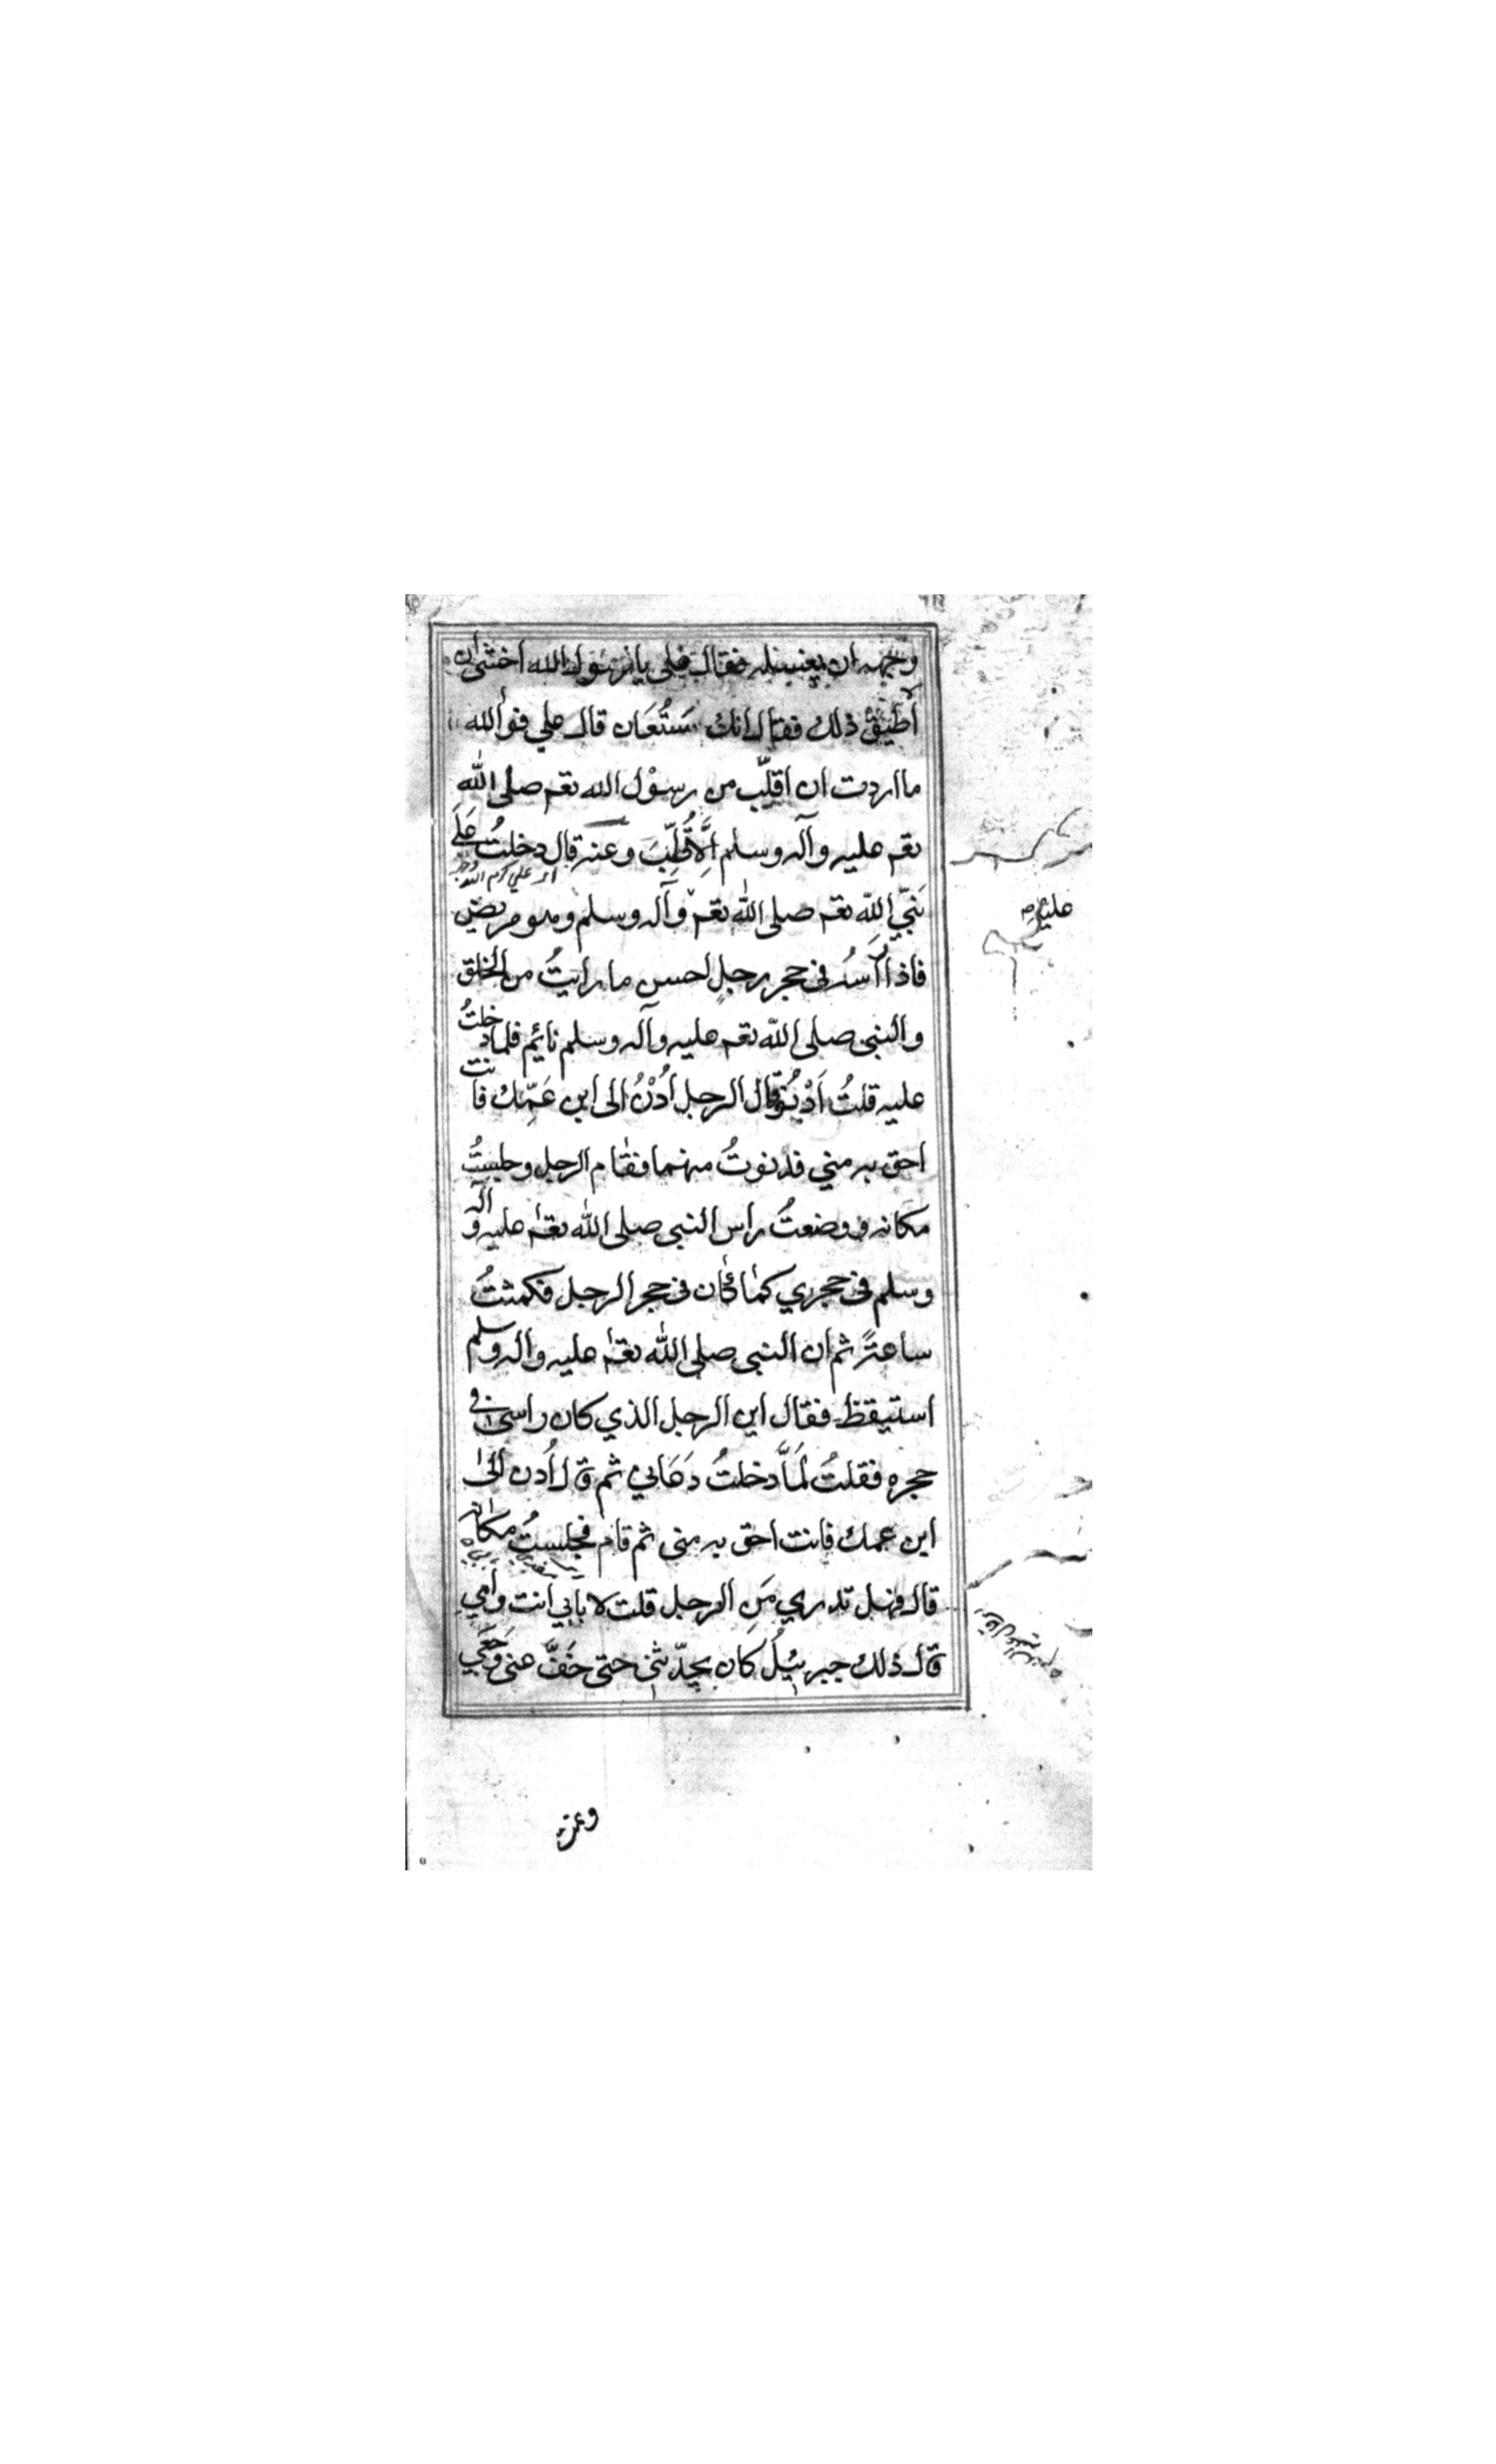 وجهه ان يغسله فقال علي يا رسول الله اخشى ان
لا أطيق ذلك فقال انك ستُعَان قال علي فوالله
ما اردت ان اقلّب من رسول الله تعم صلى الله
تعم عليه وآله وسلم اِلَّا قُلِّبَ وعنه قال دخلتُ عَلَى
اى علي كرم الله وجهه
نَبيّ الله تعم صلى الله تعم وآله وسلم وهو مريض
عليه صح
فاذا رأسُه فى حجر رجلٍ احسن ما رايتُ من الخلق
والنبى صلى الله تعم عليه وآله وسلم نائيم فلما دخلتُ
عليه قلتُ أَدْنُو قال الرجل اُدْنُ الى ابن عَمِّك فانت
احق به مني فدنوتُ منهما فقام الرجل وجلستُ
مكانه ووضعتُ راس النبى صلى الله تعم عليه وآله
وسلم فى حجري كما كان فى حجر الرجل فكمثتُ
ساعةً ثم ان النبى صلى الله تعم عليه واله وسلم
استيقظ فقال اين الرجل الذي كان راسى فى
حجره فقلتُ لَمَّا دخلتُ دَعَاني ثم قال اُدن الى
ابن عمك فانت احق به منى ثم قام فجلستُ مكانه
قال فهل تدري مَنِ الرجل قلت لا بابي انت وأمي
قال ذلك جبرئيلُ كان يحدّثنى حتى خَفَّ عنى وَجَعي
وعنه